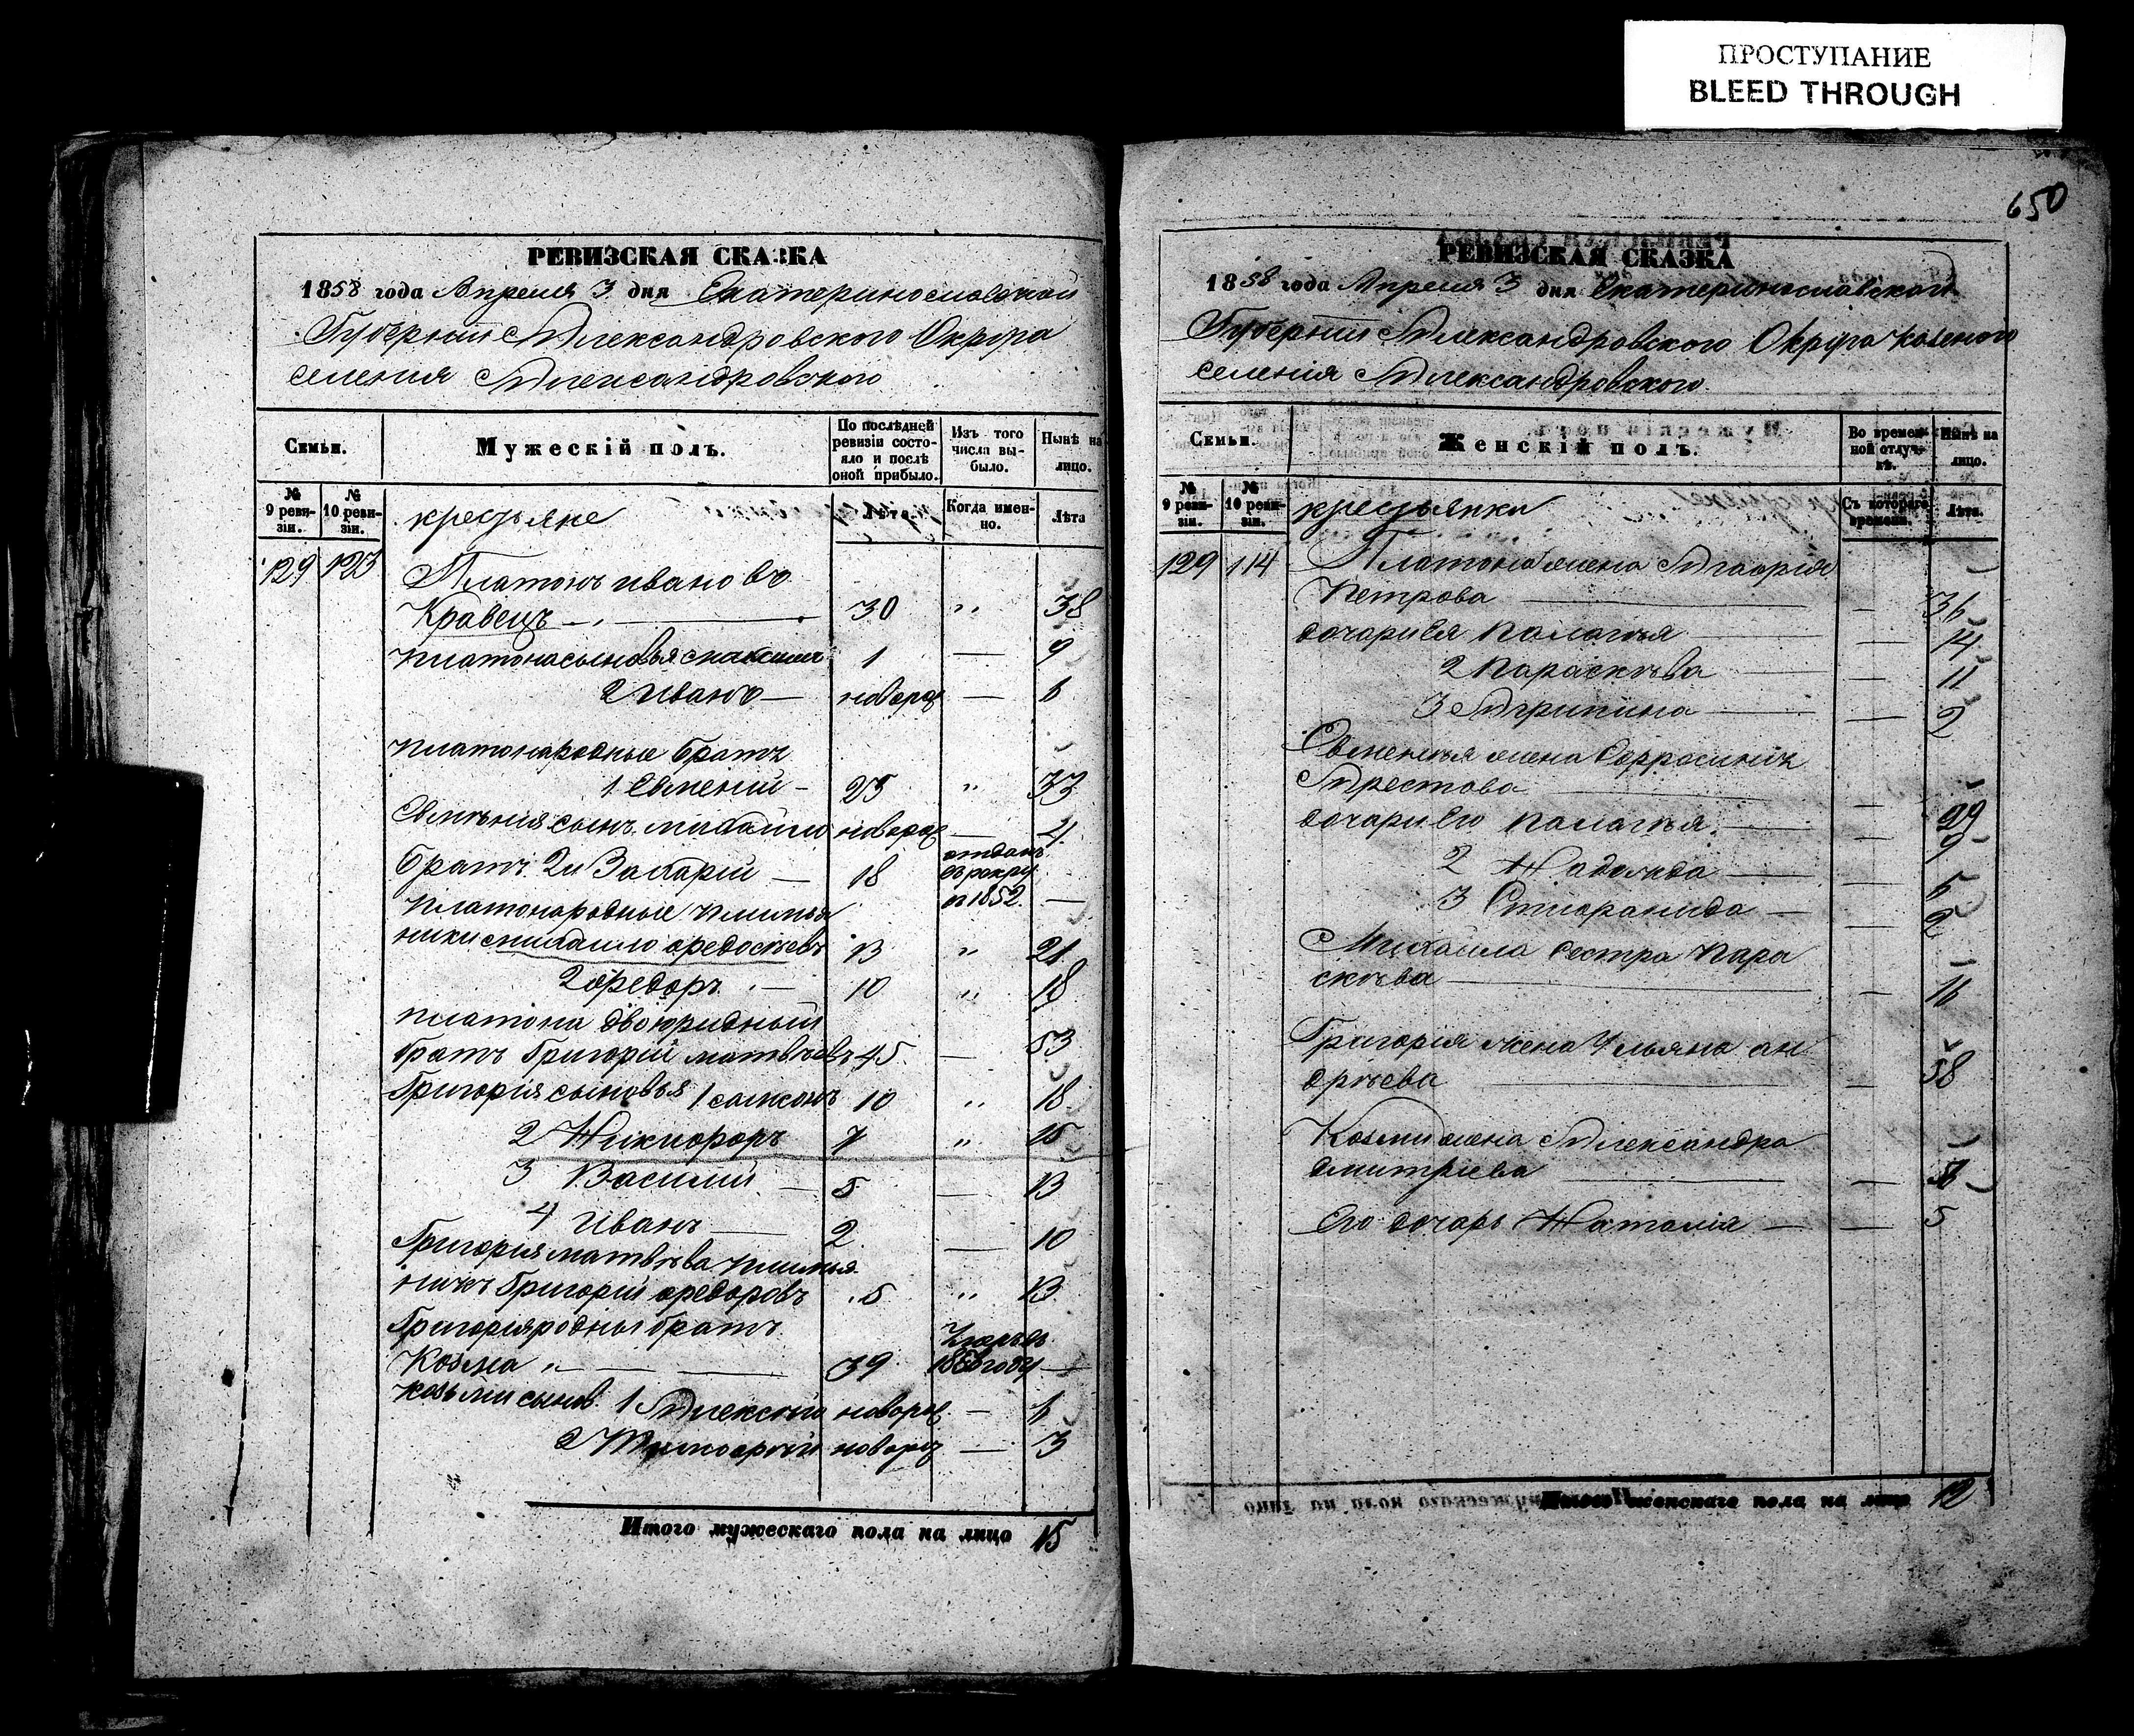 ПРОСТУПАНИЕ
BLEED THROUGH
650
РЕВИЗСКАЯ СКАЗКА
1858 года Апреля 3 дня Екатеринославской
Губернии Александровского Округа
селения Александровского
Семьи.
Мужескій полъ.
По послѣдней ревизіи состояло и послѣ оной прибыло.
Изъ того числа выбыло.
Нынѣ на лицо.
№ 9 ревизіи.
№ 10 ревизіи.
крестьяне
Лѣта.
Когда именно.
Лѣта
129 123 Платонъ ивановъ
Кравецъ 30 " 38
платона сыновья 1 максимъ 1 — 9
2 Иванъ — новорож — 6
платона родные братъ
1. Евмений — 25 " 33
Евменія сынъ михаило новорож — 4
братъ 2й Захарій — 18 отданъ въ рекру въ 1852 —
платона родные племян
ники михаило федосѣевъ 13 " 21
2 федоръ. — 10 " 18
платона двоюридный
братъ Григорій матвѣевъ 45 — 53
Григорія сыновья 1 самсонъ 10 " 18
2 Никифоръ 7 " 15
3 Василий — 5 — 13
4 Иванъ — 2 — 10
Григорія матвѣева племя
никъ Григорій федоровъ 5 " 13
Григорія родны братъ
Козма " — 39 году —
козьми сынов. 1 Алексѣй новорож — 6
2 Тимофей новорж — 3
Итого мужескаго пола на лицо 15
РЕВИЗСКАЯ СКАЗКА
1858 года Апреля 3 дня Екатеринославской
Губернии Александровского Округа казеного
селенія Александровского
Семьи.
Женскій полъ.
Во временной отлучкѣ.
Нынѣ на лицо.
№ 9 ревизіи.
№ 10 ревизіи.
крестьянки
Съ котораго времени.
Лѣта.
129 114 Платона жена
Петрова — — 36
дочари ея Палагья — — 14
2 Параскѣва — — 11
3 Агрипина — — 2
Евменья жена Ефросинія
— — 29
дочари его палагья. — — 9
2 Надежда — — 6
3 — — 2
Михаила сестра пара
скѣва — — 16
Григорія жена Ульяна ан
дрѣева — — 58
Козми жена Александра
дмитріева — —
Его дочарь Наталія — — 5
Итого женскаго пола на лицо 12